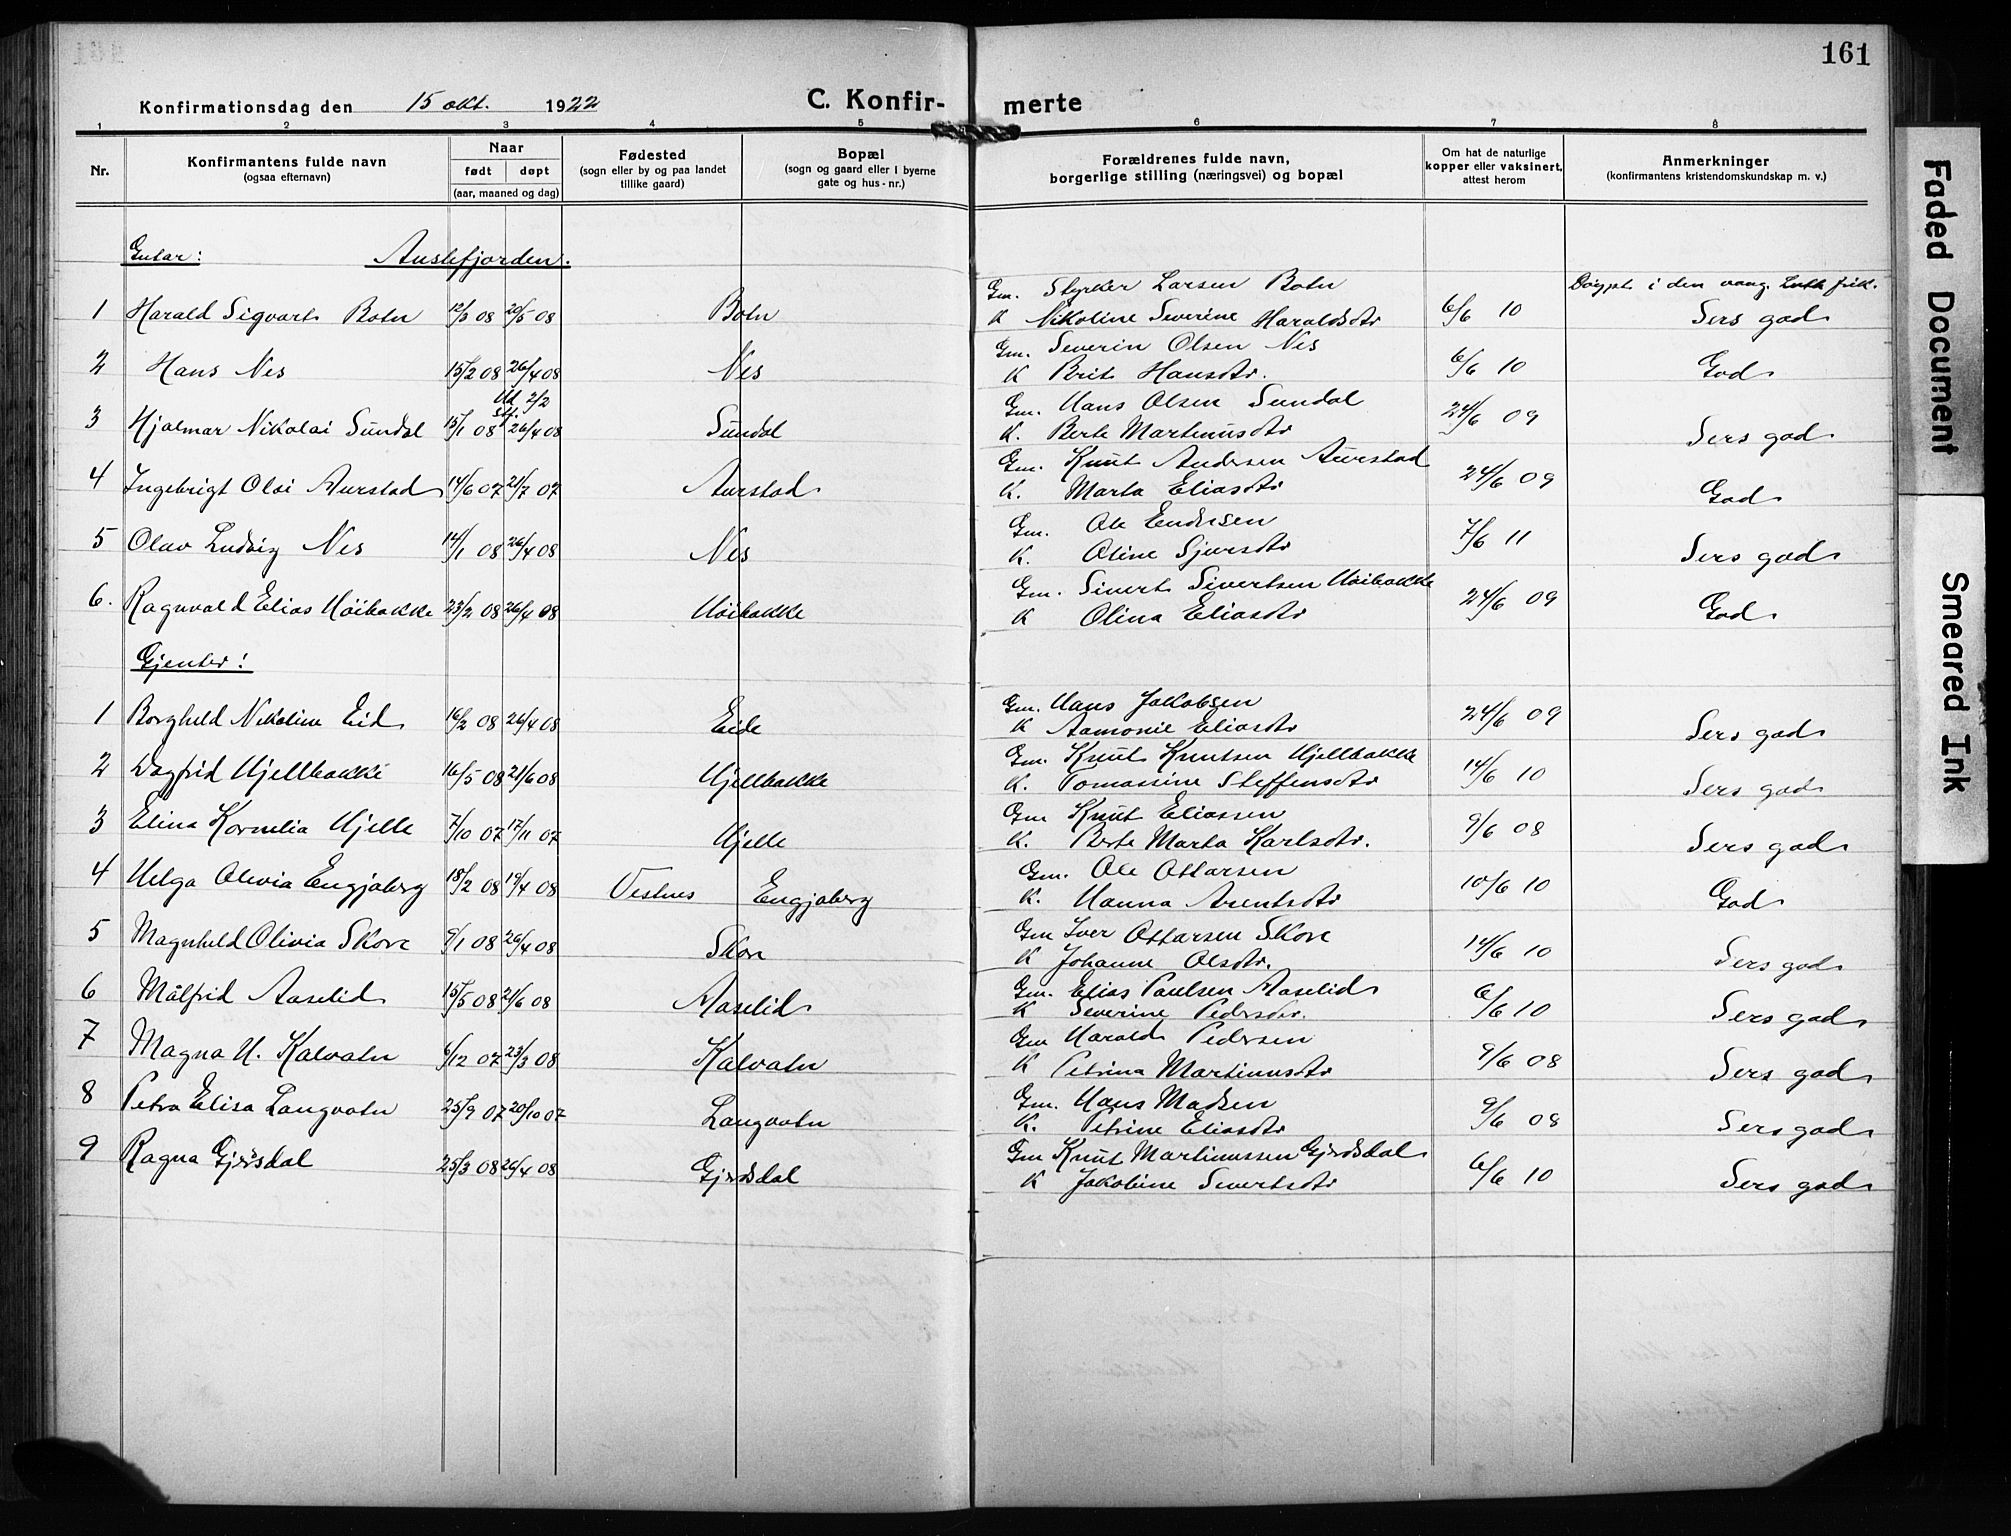 161
Konfirmationsdag den 15 okt. 1922 C. Konfir- merte
1 2 3 4 5 6 7 8
Nr.
Konfirmantens fulde navn
(ogsaa efternavn)
Naar
født døpt
(aar, maaned og dag)
Fødested
(sogn eller by og paa landet
tillike gaard)
Bopæl
(sogn og gaard eller i byerne
gate og hus-nr.)
Forældrenes fulde navn,
borgerlige stilling (næringsvei) og bopæl
Om hat de naturlige
kopper eller vaksinert,
attest herom
Anmerkninger
(konfirmantens kristendomskundskap m. v.)
Gutar: Austefjorden.
Gm. Styrker Larsen Botn Døypt i den vang. Luth frik.
1 Harald Sigvart Botn 12/3 08 20/5 08 Botn K Nikoline Severine Haraldsdtr 6/6 10 Sers god
Gm. Severin Olsen Nes
2 Hans Nes 15/2 08 26/4 08 Nes K Brit Hansdtr. 6/6 10 God
2/2
Gm. Hans Olsen Sundal
3 Hjalmar Nikolai Sundal 15/1 08 26/4 08 Sundal K. Berte Martinusdtr 24/6 09 Sers god
Gm. Knut Andersen Aurstad
4 Ingebrigt Olai Aurstad 14/6 07 21/7 07 Aurstad K. Marta Eliasdtr 24/6 09 God
Gm. Ole Endresen
5 Olav Ludvig Nes 14/1 08 26/4 08 Nes K. Oline Sjursdtr 7/6 11 Sers god
Gm. Sivert Sivertsen Høibakke
6. Ragnvald Elias Høibakke 23/2 08 26/4 08 Høibakke K Olina Eliasdtr 24/6 09 God
Gjenter:
Gm. Hans Jakobsen
1 Borghild Nikoline Eid 16/2 08 26/4 08 Eide K Aamonie Eliasdtr 24/6 09 Sers god
Gm. Knut Knutsen Hjellbakke
2 Dagfrid Hjellbakke 16/5 08 21/6 08 Hjellbakke K. Tomassine Steffensdtr 14/6 10 Sers god
Gm Knut Eliassen
3 Elina Kornelia Hjelle 7/10 07 17/11 07 Hjelle K. Berte Marta Karlsdtr. 9/6 08 Sers god
Gm. Ole Ottarsen
4 Helga Olivia Engjaberg 18/2 08 19/4 08 Vestnes Engjaberg K. Hanna Arentsdtr 10/6 10 God
Gm Iver Ottarsen Skore
5 Magnhild Olivia Skore 9/1 08 26/4 08 Skore K Johanne Olsdtr. 14/6 10 Sers god
Gm. Elias Paulsen Aaselid
6 Målfrid Aaselid 15/5 08 21/6 08 Aaselid K Severine Pedersdtr. 6/6 10 Sers god
Gm Harald Pedersen
7 Magna H. Kalvatn 6/12 07 23/3 08 Kalvatn K Petrina Martinusdtr 9/6 08 Sers god
Gm. Hans Madsen
8 Petra Elisa Langvatn 25/9 07 20/10 07 Langvatn K. Petrine Eliasdtr 9/6 08 Sers god
Gm Knut Martinussen Gjerdsdal
9 Ragna Gjersdal 25/3 08 26/4 08 Gjerdsdal K Jakobine Sivertsdtr 6/6 10 Sers god
Faded Document
Smeared Ink